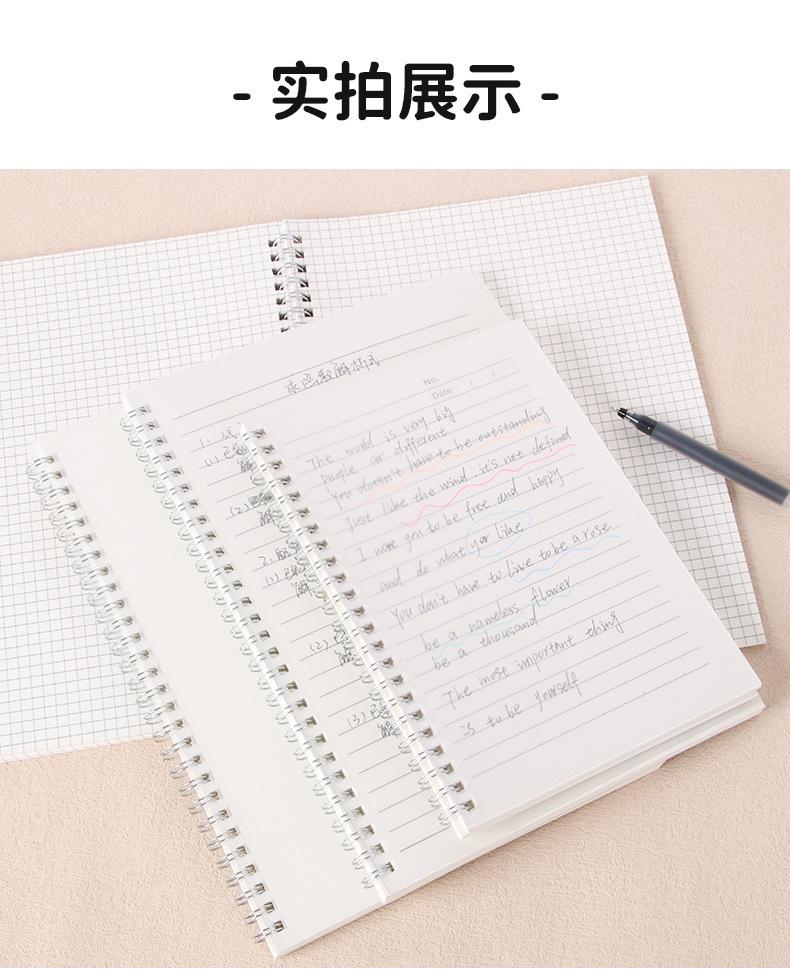 - 实拍展示 -
求函数解析式
1.
(1) 已
解
(2)
解
2.
(1) 已
解
(2)
解
(3) 已
解
No.
Date / /
The world is very big
People ar different
You doesn't have to be outstanding
Just like the wind it's not defined
I want you to be free and happy
and do what you like
You don't have to live to be a rose
be a nameless flower
be a thousand
The most important thing
is to be yourself